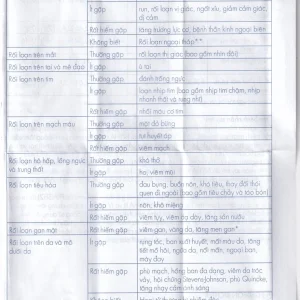 Ít gặp run, rối loạn vị giác, ngất xỉu, giảm cảm giác, dị cảm
Rất hiếm gặp tăng trương lực cơ, bệnh thần kinh ngoại biên
Không biết Rối loạn ngoại tháp**
Rối loạn trên mắt Thường gặp rối loạn thị giác (bao gồm nhìn đôi)
Rối loạn trên tai và mê đạo Ít gặp ù tai
Rối loạn trên tim Thường gặp đánh trống ngực
Ít gặp loạn nhịp tim (bao gồm nhịp tim chậm, nhịp nhanh thất và rung nhĩ)
Rất hiếm gặp nhồi máu cơ tim
Rối loạn trên mạch máu Thường gặp mặt đỏ bừng
Ít gặp hạ huyết áp
Rất hiếm gặp viêm mạch
Rối loạn hô hấp, lồng ngực và trung thất Thường gặp khó thở
Ít gặp ho, viêm mũi
Rối loạn tiêu hóa Thường gặp đau bụng, buồn nôn, khó tiêu, thay đổi thói quen đi ngoài (bao gồm tiêu chảy và táo bón)
Ít gặp nôn, khô miệng
Rất hiếm gặp viêm tụy, viêm dạ dày, tăng sản nướu
Rối loạn gan mật Rất hiếm gặp viêm gan, vàng da, tăng men gan*
Rối loạn trên da và mô dưới da Ít gặp rụng tóc, ban xuất huyết, mất màu da, tăng tiết mồ hôi, ngứa da, nổi mẩn, ngoại ban, mày đay
Rất hiếm gặp phù mạch, hồng ban đa dạng, viêm da tróc vảy, hội chứng Stevens-Johnson, phù Quincke, nhạy cảm ánh sáng